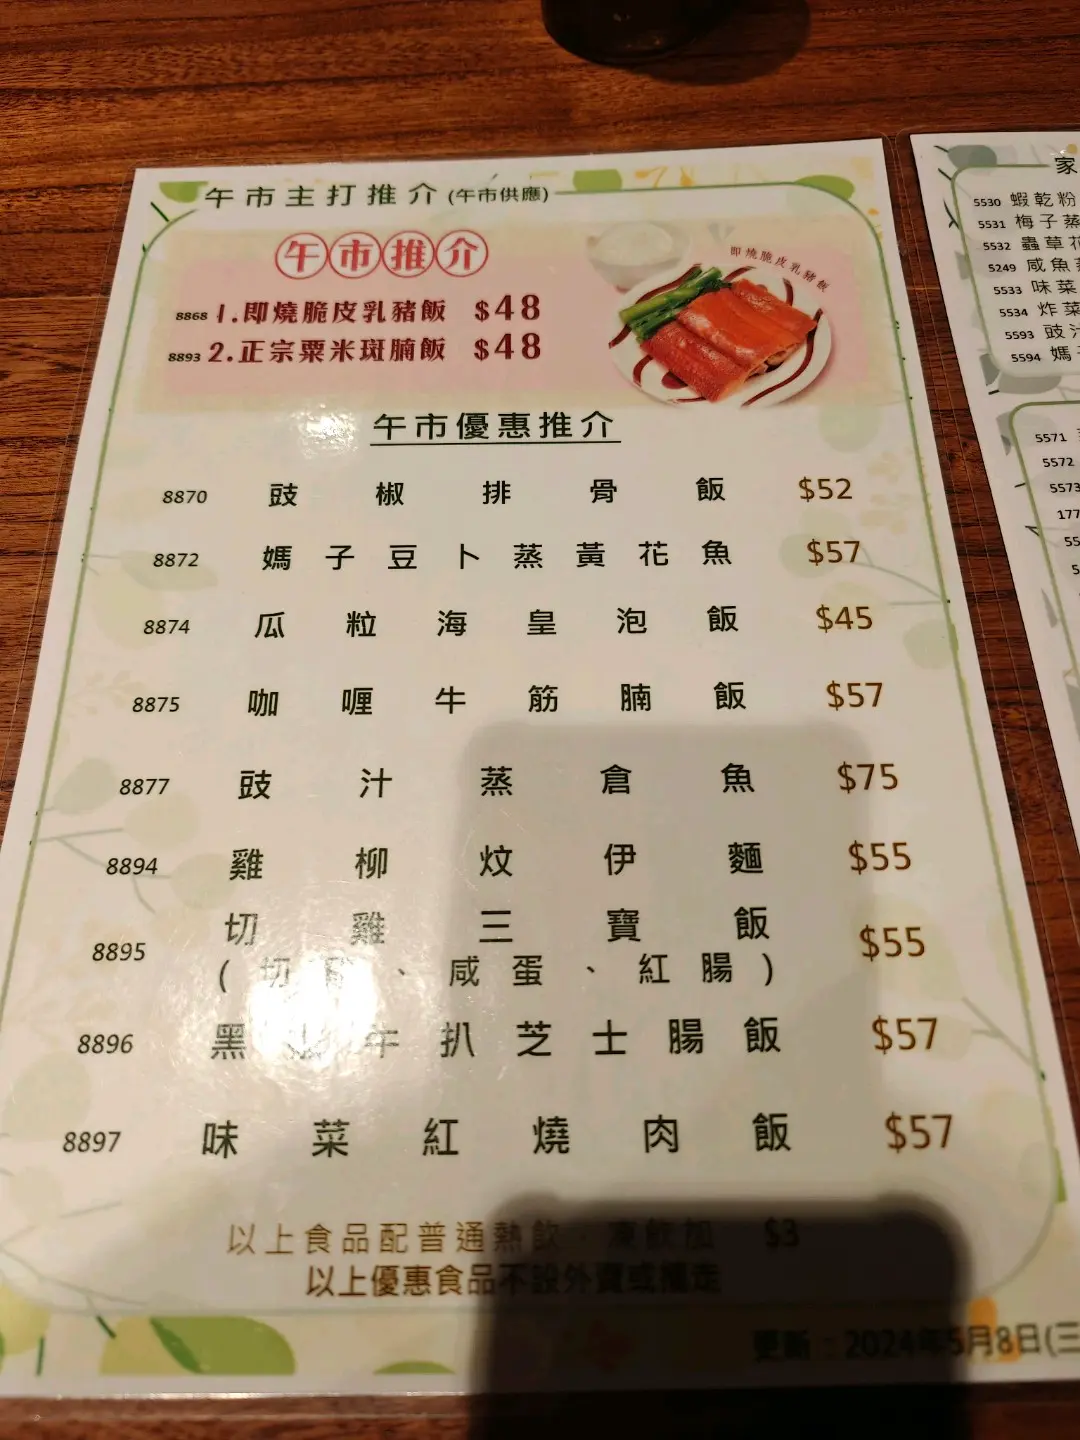 午市主打推介(午市供應)
午市推介
即燒脆皮乳豬飯
8868 1.即燒脆皮乳豬飯 $48
8893 2.正宗粟米斑腩飯 $48
午市優惠推介
8870 豉椒排骨飯 $52
8872 媽子豆卜蒸黃花魚 $57
8874 瓜粒海皇泡飯 $45
8875 咖喱牛筋腩飯 $57
8877 豉汁蒸倉魚 $75
8894 雞柳炆伊麵 $55
8895 切雞三寶飯 $55
(切、咸蛋、紅腸)
8896 黑牛扒芝士腸飯 $57
8897 味菜紅燒肉飯 $57
以上食品配普通熱飲,凍飲加 $3
以上優惠食品不設外賣或攜走
更新:2024年5月8日(三
家
5530 蝦乾粉
5531 梅子蒸
5532 蟲草花
5249 咸魚
5533 味菜
5534 炸菜
5593 豉汁
5594 媽
5571
5572
5573
177
55
5